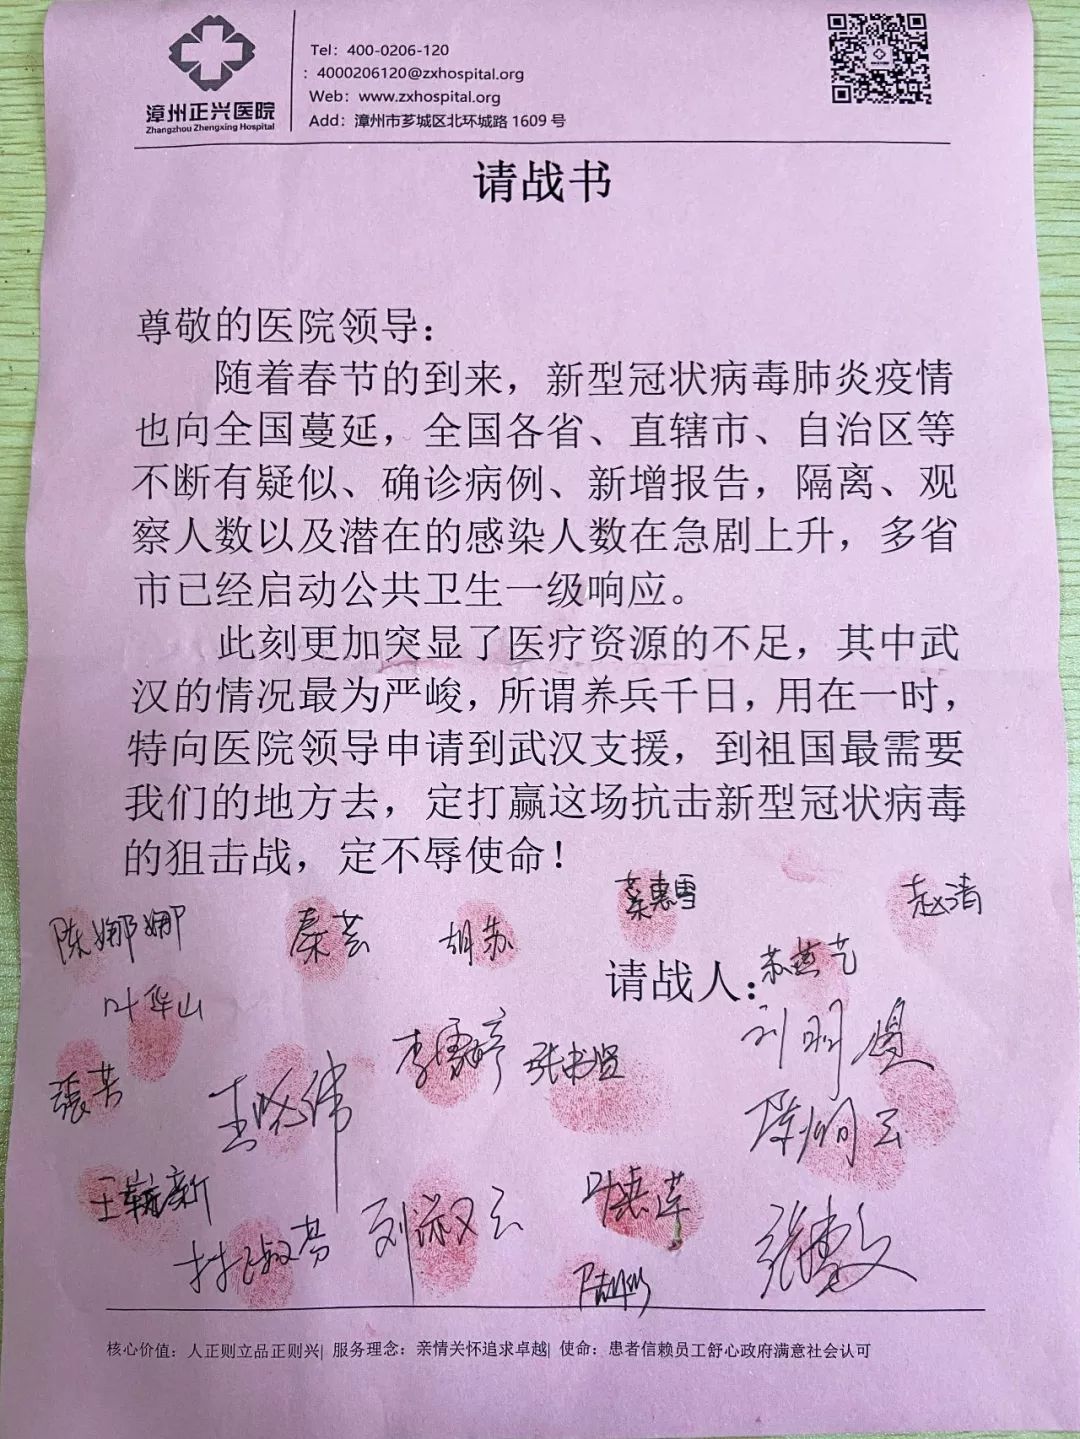 漳州正兴医院
Zhangzhou Zhengxing Hospital
Tel：400-0206-120
：4000206120@zxhospital.org
Web：www.zxhospital.org
Add：漳州市芗城区北环城路1609号
请战书
尊敬的医院领导：
随着春节的到来，新型冠状病毒肺炎疫情
也向全国蔓延，全国各省、直辖市、自治区等
不断有疑似、确诊病例、新增报告，隔离、观
察人数以及潜在的感染人数在急剧上升，多省
市已经启动公共卫生一级响应。
此刻更加突显了医疗资源的不足，其中武
汉的情况最为严峻，所谓养兵千日，用在一时，
特向医院领导申请到武汉支援，到祖国最需要
我们的地方去，定打赢这场抗击新型冠状病毒
的狙击战，定不辱使命！
蔡惠雪
赵清
陈娜娜
秦芸
胡苏
请战人：
苏燕艺
叶华山
张芳
王晓伟
刘淑云
张敏
核心价值：人正则立品正则兴| 服务理念：亲情关怀追求卓越| 使命：患者信赖员工舒心政府满意社会认可